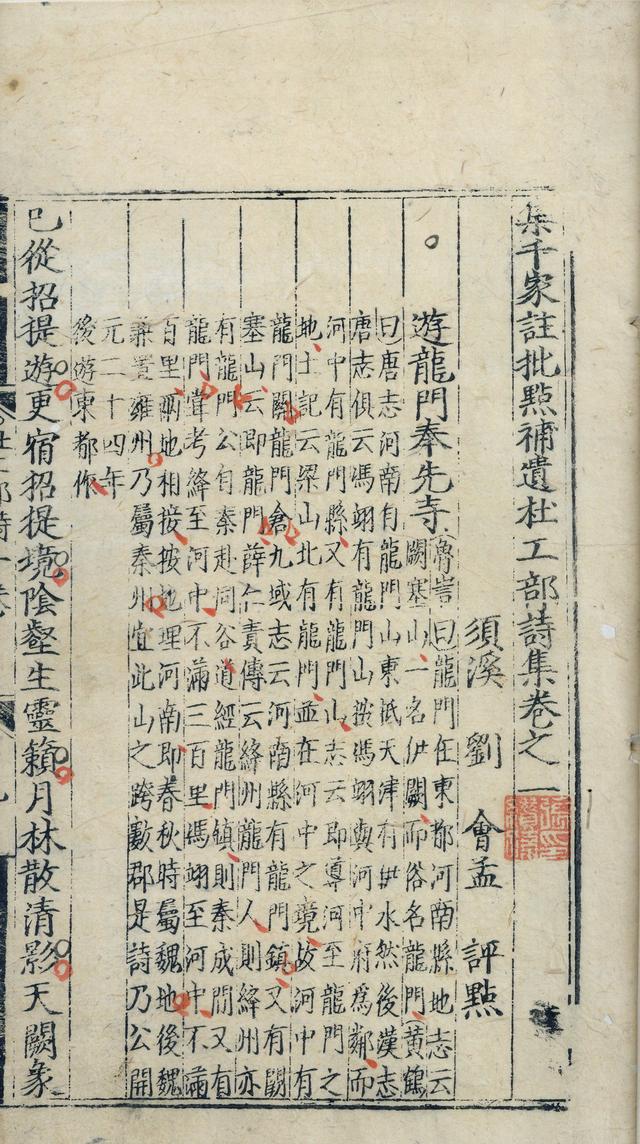 集千家註批點補遺杜工部詩集卷之一
須溪 劉 會孟 評點
遊龍門奉先寺
魯訔曰龍門在東都河南縣地志云
闕塞山一名伊闕而俗名龍門黃鶴
曰唐志河南自龍門山東抵天津有伊水然後漢志
唐志俱云馮翊有龍門山按馮翊與河中府爲鄰而
河中有龍門縣又有龍門山志云即導河至龍門之
地土記云梁山北有龍門並在河中之境故河中有
龍門關龍門倉九域志云河南縣有龍門鎮又有闕
塞山云即龍門薛仁貴傳云絳州龍門人則絳州亦
有龍門公自秦赴同谷道經龍門鎮則秦成間又有
龍門聳考絳至河中不滿三百里馮翊至河中不滿
百里兩地相接按地理河南即春秋時屬魏地後魏
兼置雍州乃屬秦州宜此山之跨數郡是詩乃公開
元二十四年
後遊東都作
已從招提遊更宿招提境陰壑生靈籟月林散清影天闕象